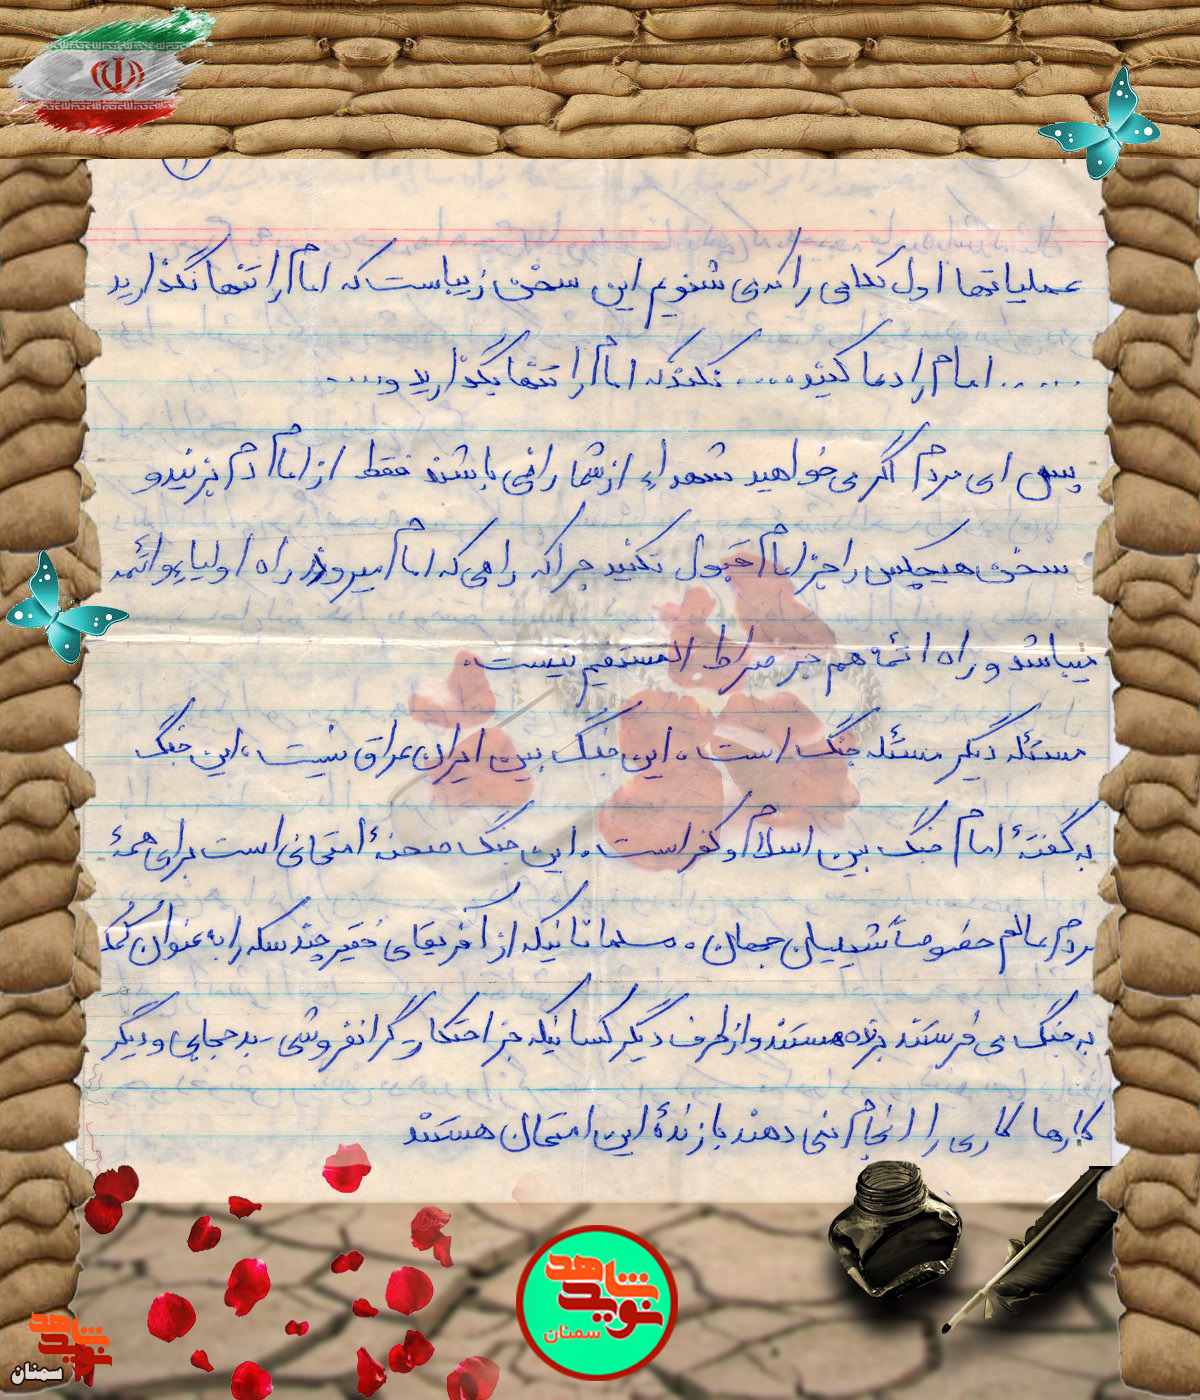 عملیاتها اول کلامی را که می شنویم این سخن زیباست که امام را تنها نگذارید
..... امام را دعا کنید .... نکند که امام را تنها بگذارید و....
پس ای مردم اگر می خواهید شهداء از شما راضی باشند فقط از امام دم بزنید و
سخن هیچکس را جز امام قبول نکنید چرا که راهی که امام میرود راه اولیاء وائمه
میباشد و راه ائمه هم جز صراط المستقیم نیست.
مسئله دیگر مسئله جنگ است، این جنگ بین ایران عراق نیست، این جنگ
به گفتهٔ امام جنگ بین اسلام و کفر است. این جنگ صحنهٔ امتحانی است برای همهٔ
مردم عالم خصوصاً شیعیان جهان. مسلمانانیکه از آفریقای فقیر چند سکه را به عنوان کمک
به جنگ می فرستند برنده هستند و از طرف دیگر کسانیکه جز احتکار، گرانفروشی، بدحجابی و دیگر
کارها کاری را انجام نمی دهند بازندهٔ این امتحان هستند
نوید شاهد
سمنان
نوید شاهد
سمنان